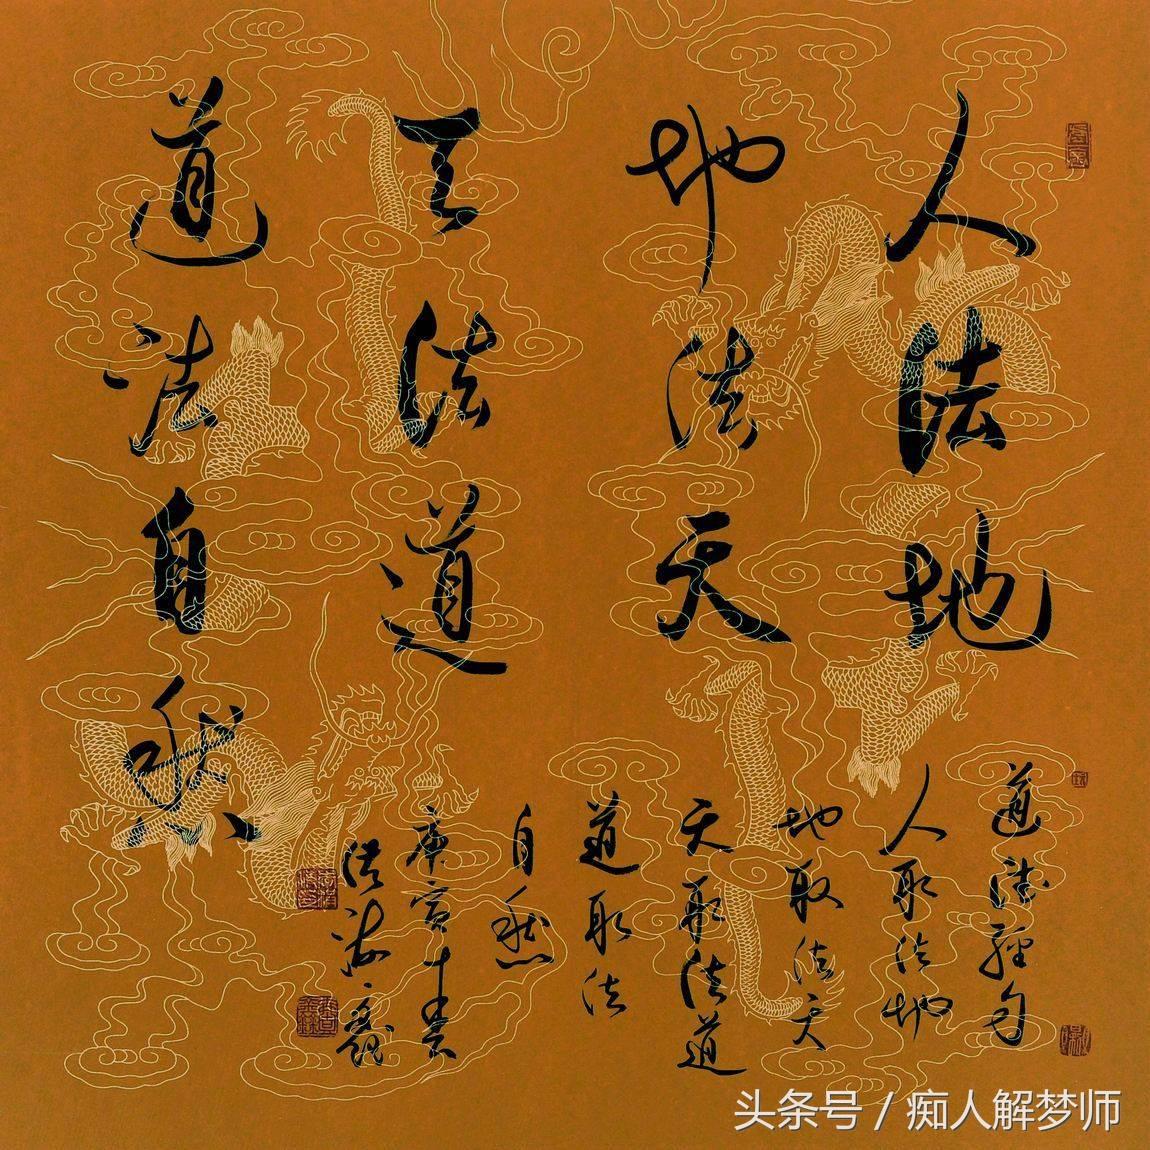 人法地
地法天
天法道
道法自然
道德經句
人取法地
地取法天
天取法道
道取法
自然
庚寅
洪海
头条号 / 痴人解梦师